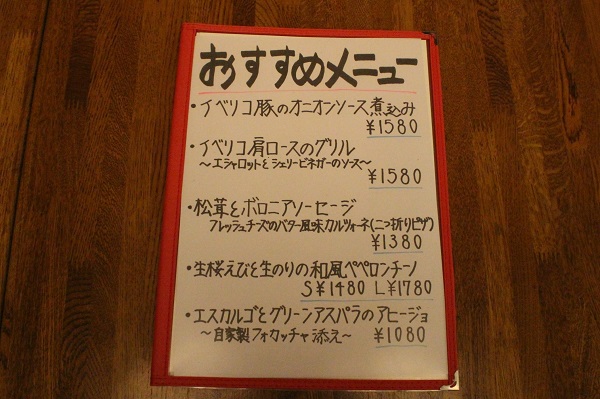 おすすめメニュー
・イベリコ豚のオニオンソース煮込み
¥1580
・イベリコ肩ロースのグリル
～エシャロットとシェリービネガーのソース～
¥1580
・松茸とボロニアソーセージ
フレッシュチーズのバター風味カルツォーネ(二つ折りピザ)
¥1380
・生桜えびと生のりの和風ペペロンチーノ
S¥1480 L¥1780
・エスカルゴとグリーンアスパラのアヒージョ
～自家製フォカッチャ添え～ ¥1080